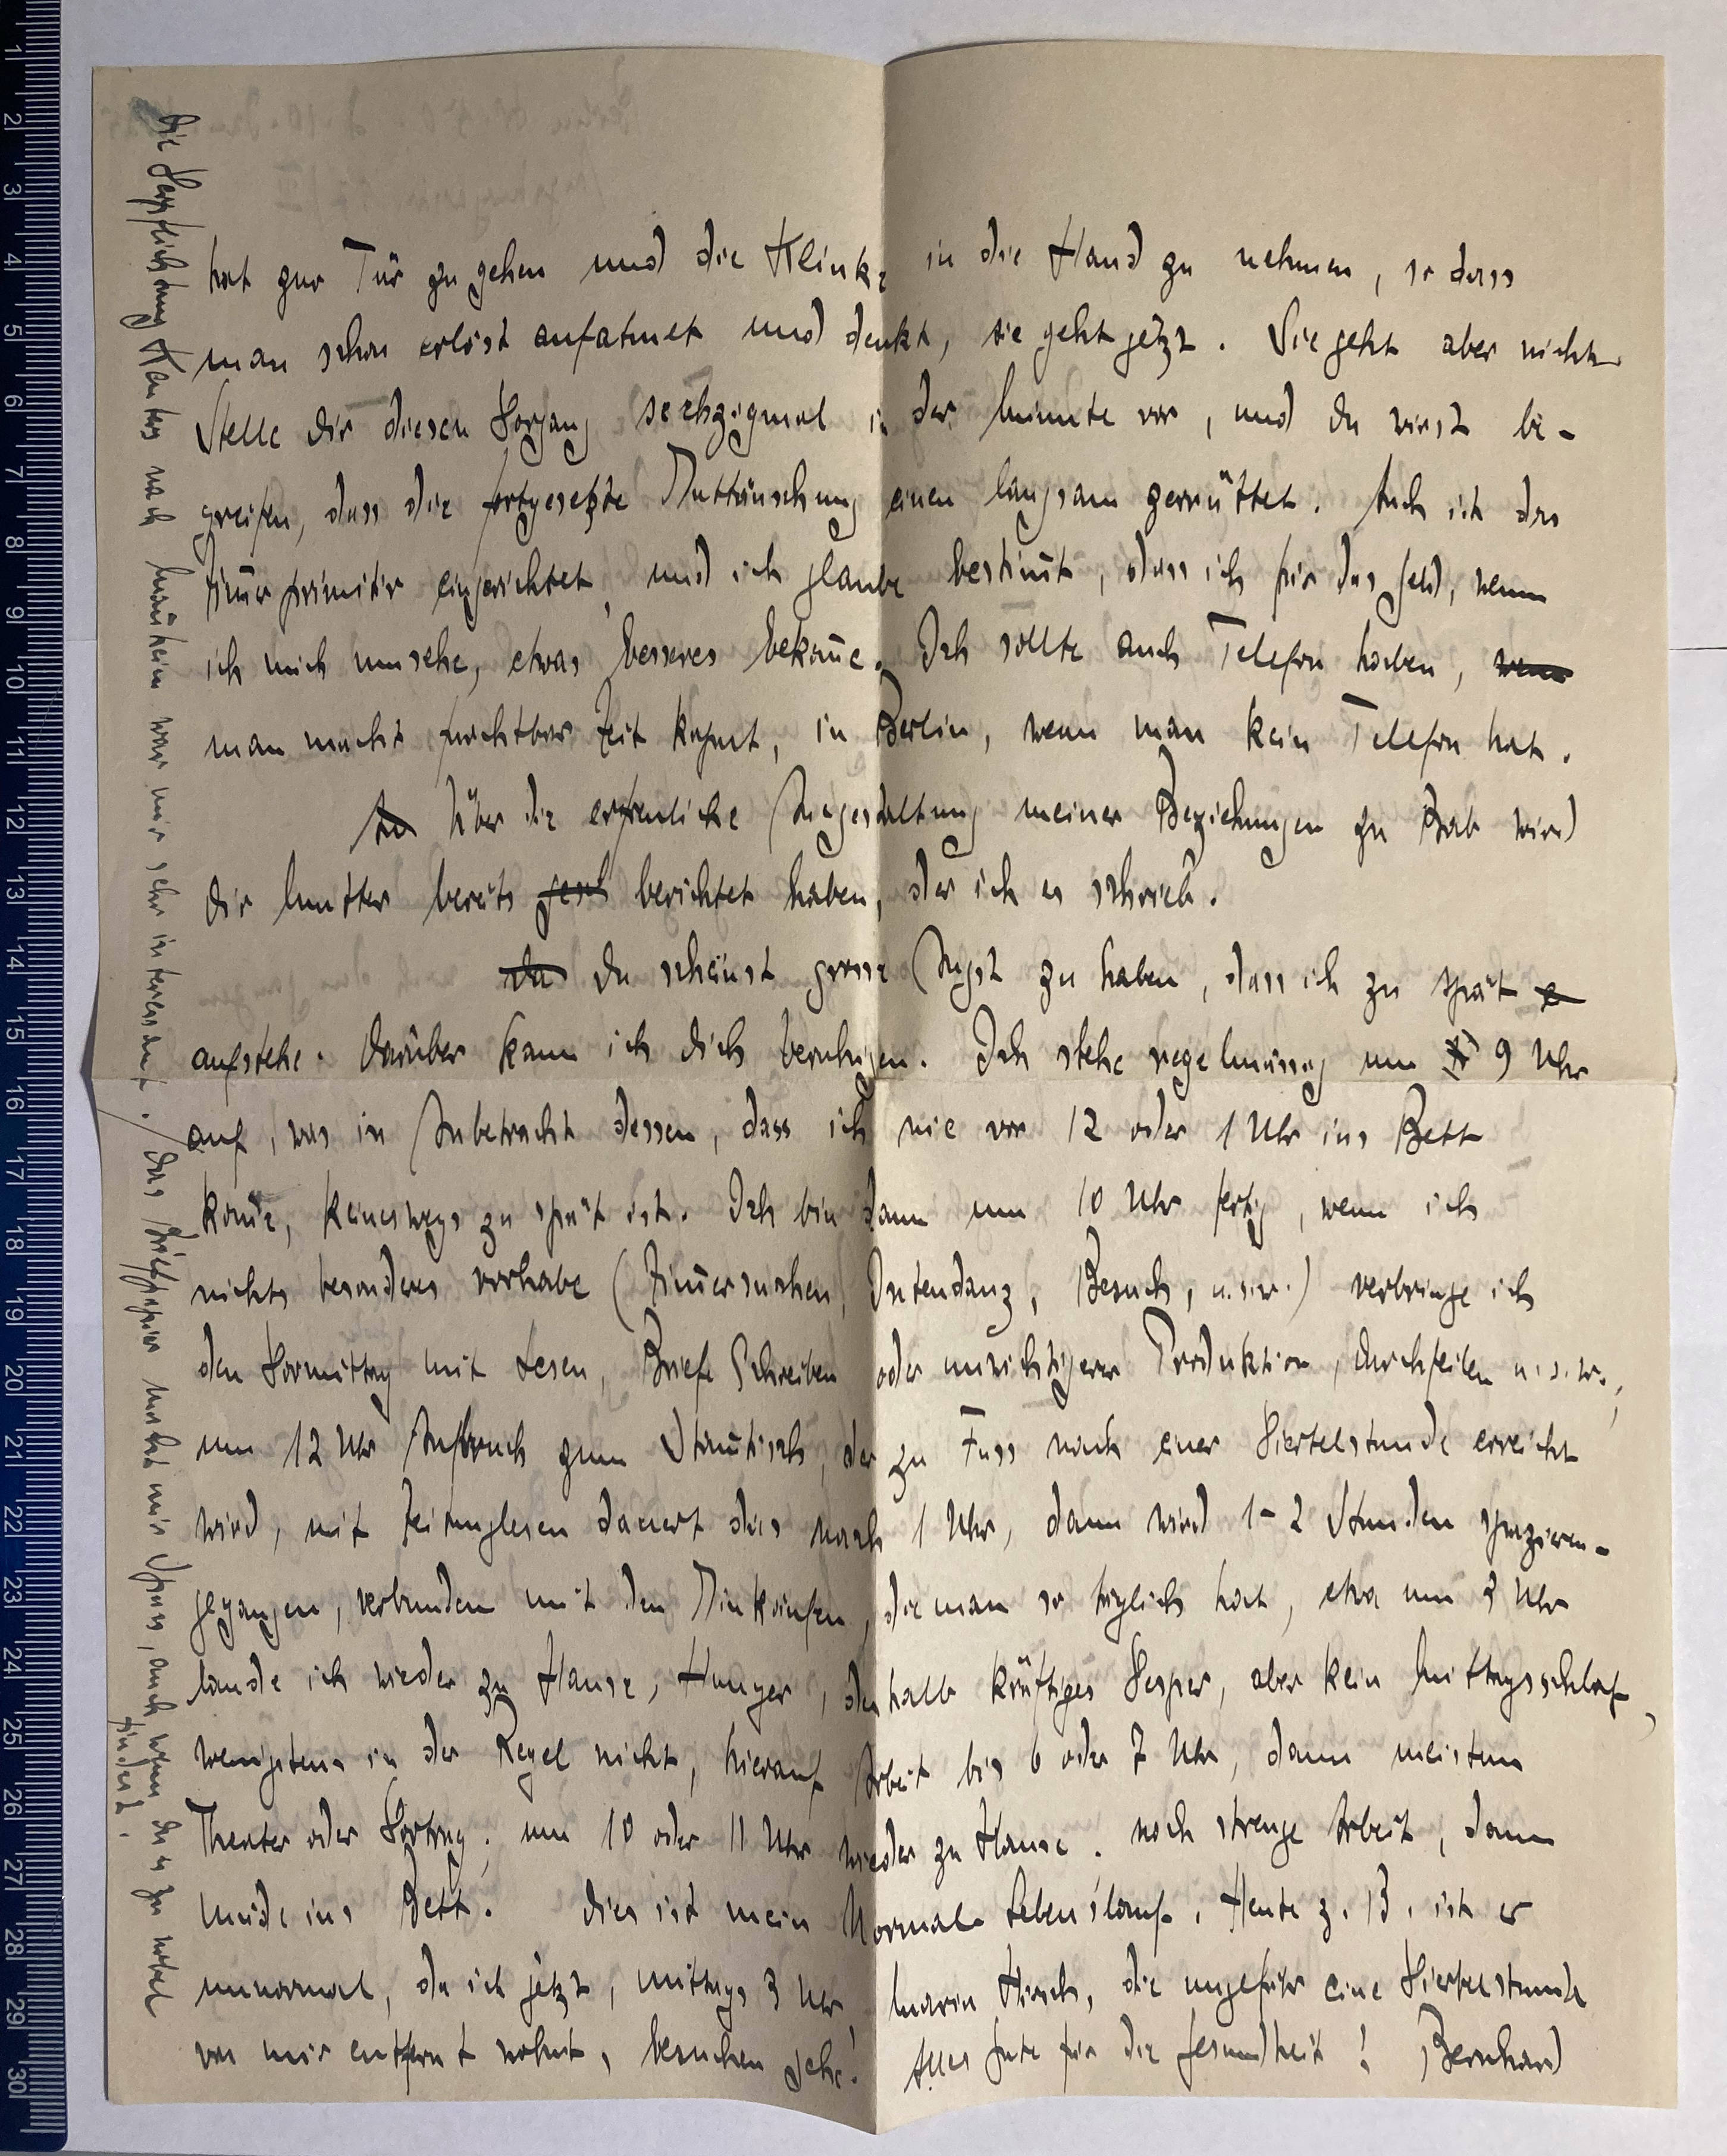 hat zur Tür zu gehen und die Klinke in die Hand zu nehmen, so dass
man schon erlöst aufatmet und denkt, sie geht jetzt. Sie geht aber nicht
Stelle dir diesen Vorgang sechzigmal in der Minute vor, und du wirst be-
greifen, dass die fortgesetzte Enttäuschung einen langsam zerrüttet. Auch ist das
Zim̄er primitiv eingerichtet, und ich glaube bestim̄t, dass ich für das Geld, wenn
ich mich umsehe, etwas besseres bekom̄e. Ich sollte auch Telefon haben, wenn
man macht furchtbar Zeit kaput, in Berlin, wenn man kein Telefon hat.
Über die erfreuliche Ausgestaltung meiner Beziehungen zu Bab wird
dir Mutter bereits berichtet haben, der ich es schrieb.
du scheinst grosse Angst zu haben, dass ich zu spät
aufstehe. Darüber kann ich dich beruhigen. Ich stehe regelmässig um 9 Uhr
auf, was in Anbetracht dessen, dass ich nie vor 12 oder 1 Uhr ins Bett
kom̄e, keineswegs zu spät ist. Ich bin dann um 10 Uhr fertig, wenn ich
nichts besonderes vorhabe (Zim̄ersuchen, Intendanz, Besuch, u.s.w.) verbringe ich
den Vormittag mit Lesen, Briefe Schreiben oder unwichtigerer Produktion, durchfeilen u.s.w.,
um 12 Uhr Aufbruch zum Stam̄tisch, der zu Fuss nach einer Viertelstunde erreicht
wird, mit Zeitunglesen dauert das nach 1 Uhr, dann wird 1-2 Stunden spazieren-
gegangen, verbunden mit den Einkäufen, die man so täglich hat, etwa um 3 Uhr
lande ich wieder zu Hause, Hunger, deshalb kräftiges Vesper, aber kein Mittagsschlaf,
wenigstens in der Regel nicht, hierauf Arbeit bis 6 oder 7 Uhr, dann meistens
Theater oder Vortrag; um 10 oder 11 Uhr wieder zu Hause. noch strenge Arbeit, dann
müde ins Bett. Dies ist mein Normal Lebenslauf. Heute z. B. ist er
unnormal, da ich jetzt, mittags 3 Uhr Maria Hirsch, die ungefähr eine Viertelstunde
von mir entfernt wohnt, besuchen gehe! Alles Gute für die Gesundheit! Bernhard
die Verpflichtung nach Mannheim war mir sehr interessant. / das Briefpapier macht mir Spass, auch wenn du es zu nobel
findest.